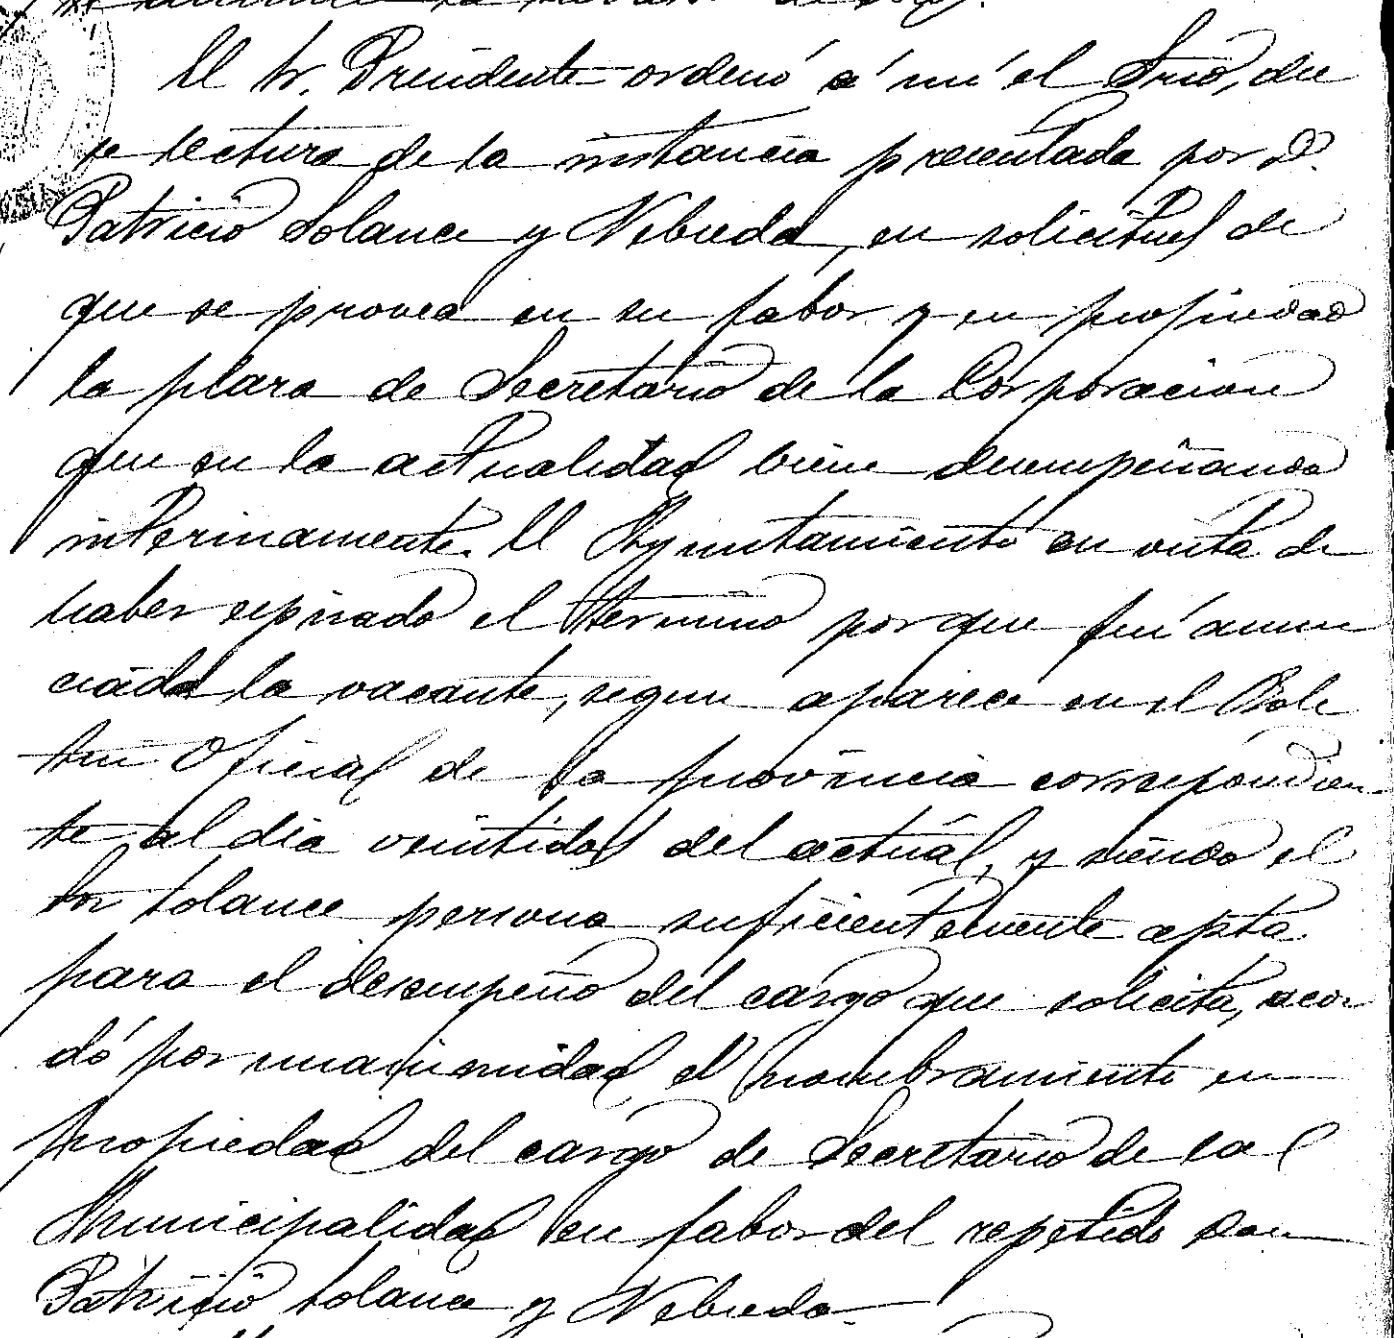 El Sr. Presidente ordenó á mí el Srio, die
se lectura de la instancia presentada por D.
Patricio Solance y Nebreda, en solicitud de
que se provea en su fabor y en propiedad
la plaza de Secretario de la Corporacion
que en la actualidad biene desempeñando
interinamente. El Ayuntamiento en vista de
haber espirado el termino porque fué anun
ciada la vacante, segun aparece en el Bole
tin Oficial de la provincia correspondien-
te al dia veintidos del actuál, y siendo el
Sor Solance persona suficientemente apta
para el desempeño del cargo que solicita, acor
dó por unanimidad el nombramiento en
propiedad del cargo de Secretario de la
Municipalidad en fabor del repetido Don
Patricio Solance y Nebreda.